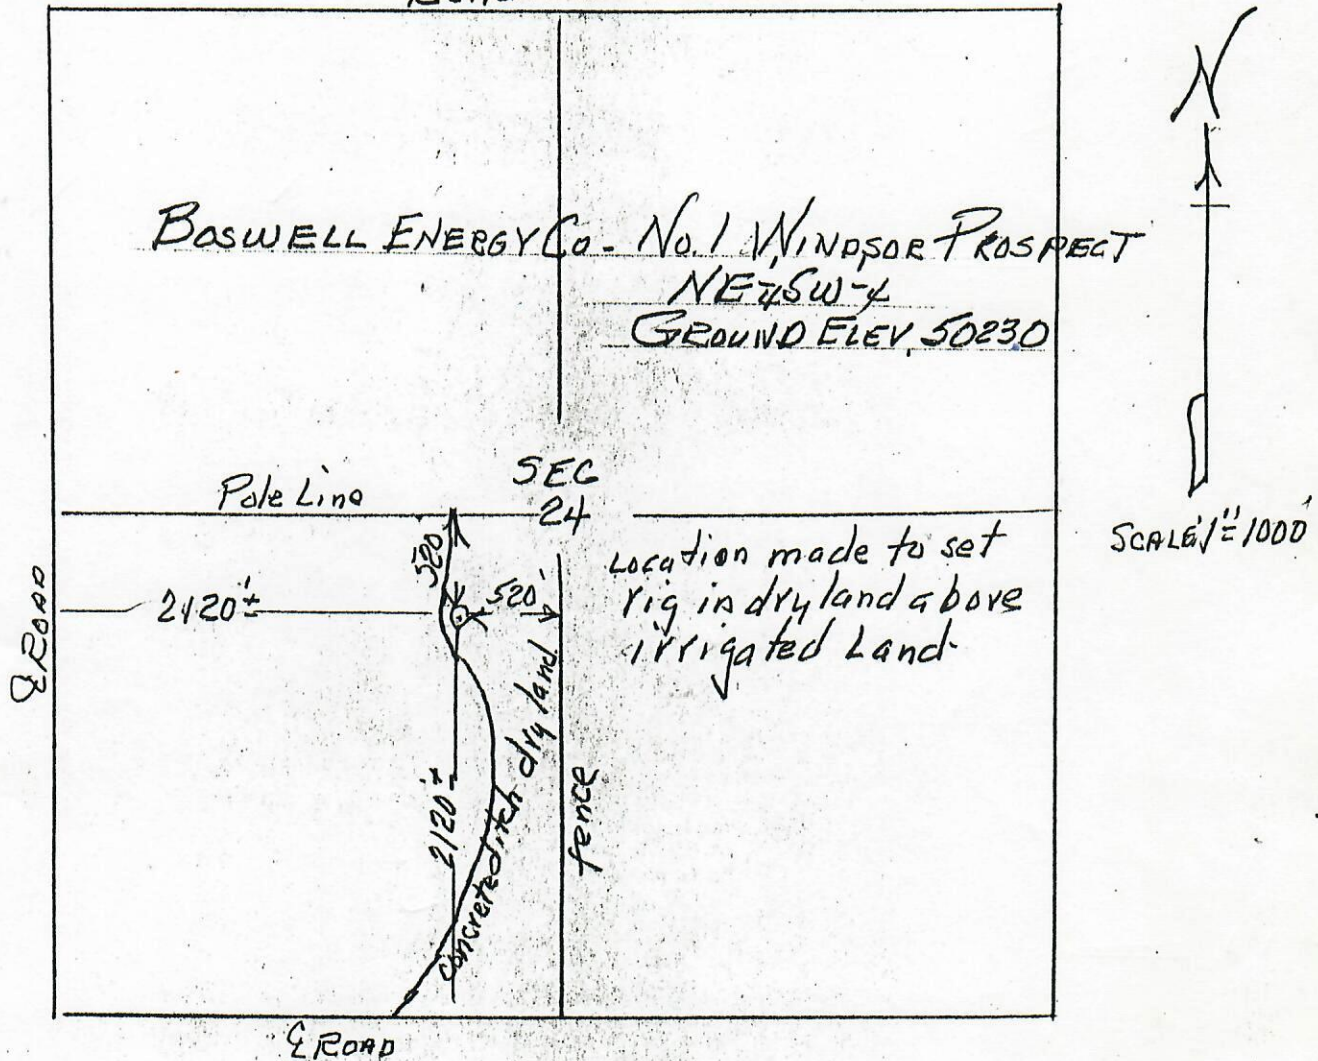 BOSWELL ENERGY Co - No. 1 WINDSOR PROSPECT
NE-4 SW-4
GROUND ELEV, 50230
N
SCALE 1" = 1000'
SEC
24
Pole Line
520'
520'
2120'±
Location made to set
rig in dry land above
irrigated Land
℄ ROAD
2120'±
concrete ditch
dry land
fence
℄ ROAD